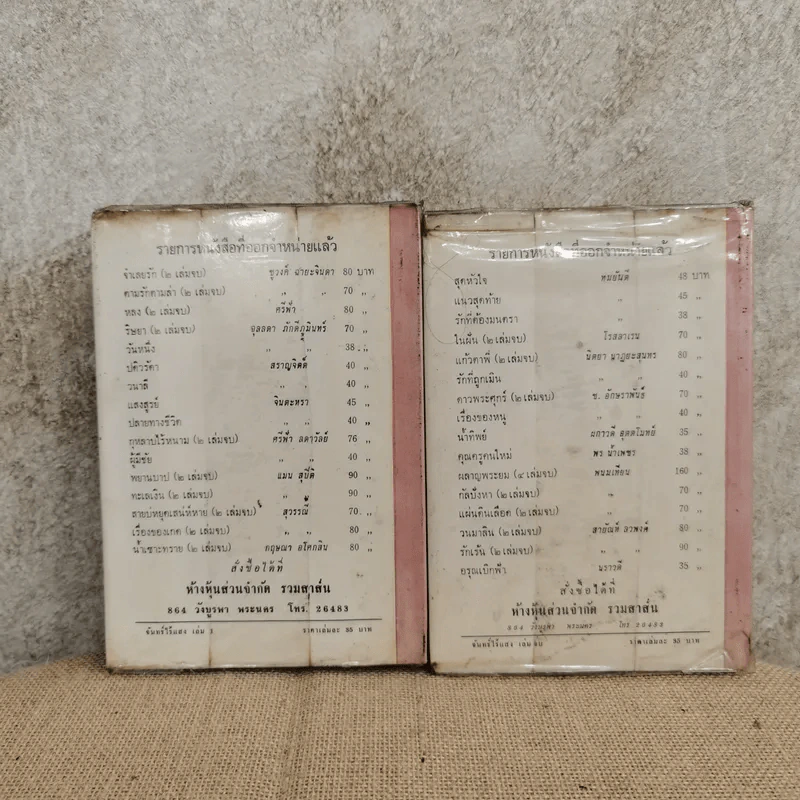 รายการหนังสือที่ออกจำหน่ายแล้ว
จำเลยรัก (๒ เล่มจบ) ชูวงศ์ ฉายะจินดา 80 บาท
ตามรักตามล่า (๒ เล่มจบ) „ „ 70 „
หลง (๒ เล่มจบ) ศรีฟ้า 80 „
ริษยา (๒ เล่มจบ) จุลลดา ภักดีภูมินทร์ 70 „
วันหนึ่ง „ „ 38 „
ปดิวรัดา สราญจิตต์ 40 „
วนาลี „ „ 40 „
แสงสูรย์ จินตะหรา 45 „
ปลายทางชีวิต „ „ 40 „
กุหลาบไร้หนาม (๒ เล่มจบ) ศรีฟ้า ลดาวัลย์ 76 „
ผู้มีชัย „ „ 40 „
พยานบาป (๒ เล่มจบ) แมน สุปิติ 90 „
ทะเลเงิน (๒ เล่มจบ) „ „ 90 „
สายบ่หยุดเสน่ห์หาย (๒ เล่มจบ) สุวรรณี 70 „
เรื่องของเกด (๒ เล่มจบ) „ „ 80 „
น้ำเซาะทราย (๒ เล่มจบ) กฤษณา อโศกสิน 80 „
สั่งซื้อได้ที่
ห้างหุ้นส่วนจำกัด รวมสาส์น
864 วังบูรพา พระนคร โทร. 26483
จันทร์ไร้แสง เล่ม 1 ราคาเล่มละ 35 บาท
รายการหนังสือที่ออกจำหน่ายแล้ว
สุดหัวใจ ทมยันตี 48 บาท
แนวสุดท้าย „ 45 „
รักที่ต้องมนตรา „ 38 „
ในฝัน (๒ เล่มจบ) โรสลาเรน 70 „
แก้วตาพี่ (๒ เล่มจบ) นิตยา นาฏยะสุนทร 80 „
รักที่ถูกเมิน „ „ 40 „
ดาวพระศุกร์ (๒ เล่มจบ) ข. อักษราพันธุ์ 70 „
เรื่องของหนู „ „ 40 „
น้ำทิพย์ ผกาวดี อุตตโมทย์ 35 „
คุณครูคนใหม่ พร น้ำเพชร 38 „
ผลาญพระยม (๔ เล่มจบ) พนมเทียน 160 „
กัลปังหา (๒ เล่มจบ) „ 70 „
แผ่นดินเลือด (๒ เล่มจบ) „ 70 „
วนมาลิน (๒ เล่มจบ) 80 „
รักเร้น (๒ เล่มจบ) „ „ 90 „
อรุณเบิกฟ้า นราวดี 35 „
สั่งซื้อได้ที่
ห้างหุ้นส่วนจำกัด รวมสาส์น
864 วังบูรพา พระนคร โทร 26483
จันทร์ไร้แสง เล่มจบ ราคาเล่มละ 35 บาท